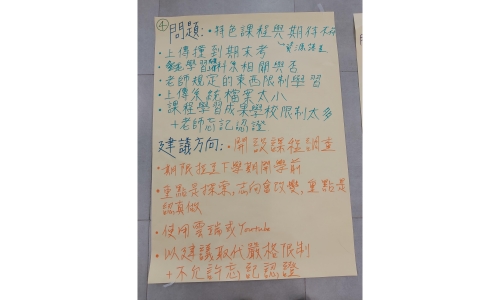 ④ 問題:・特色課程與期待不符
・上傳撞到期末考
學習歷程相關與否
・老師規定的東西限制學習
・上傳系統檔案太小
・課程學習成果學校限制太多
+老師忘記認證
建議方向:・開設課程調查
・期限推至下學期開學前
・重點是探索,志向會改變,重點是
認真做
・使用雲端或Youtube
・以建議取代嚴格限制
+不允許忘記認證